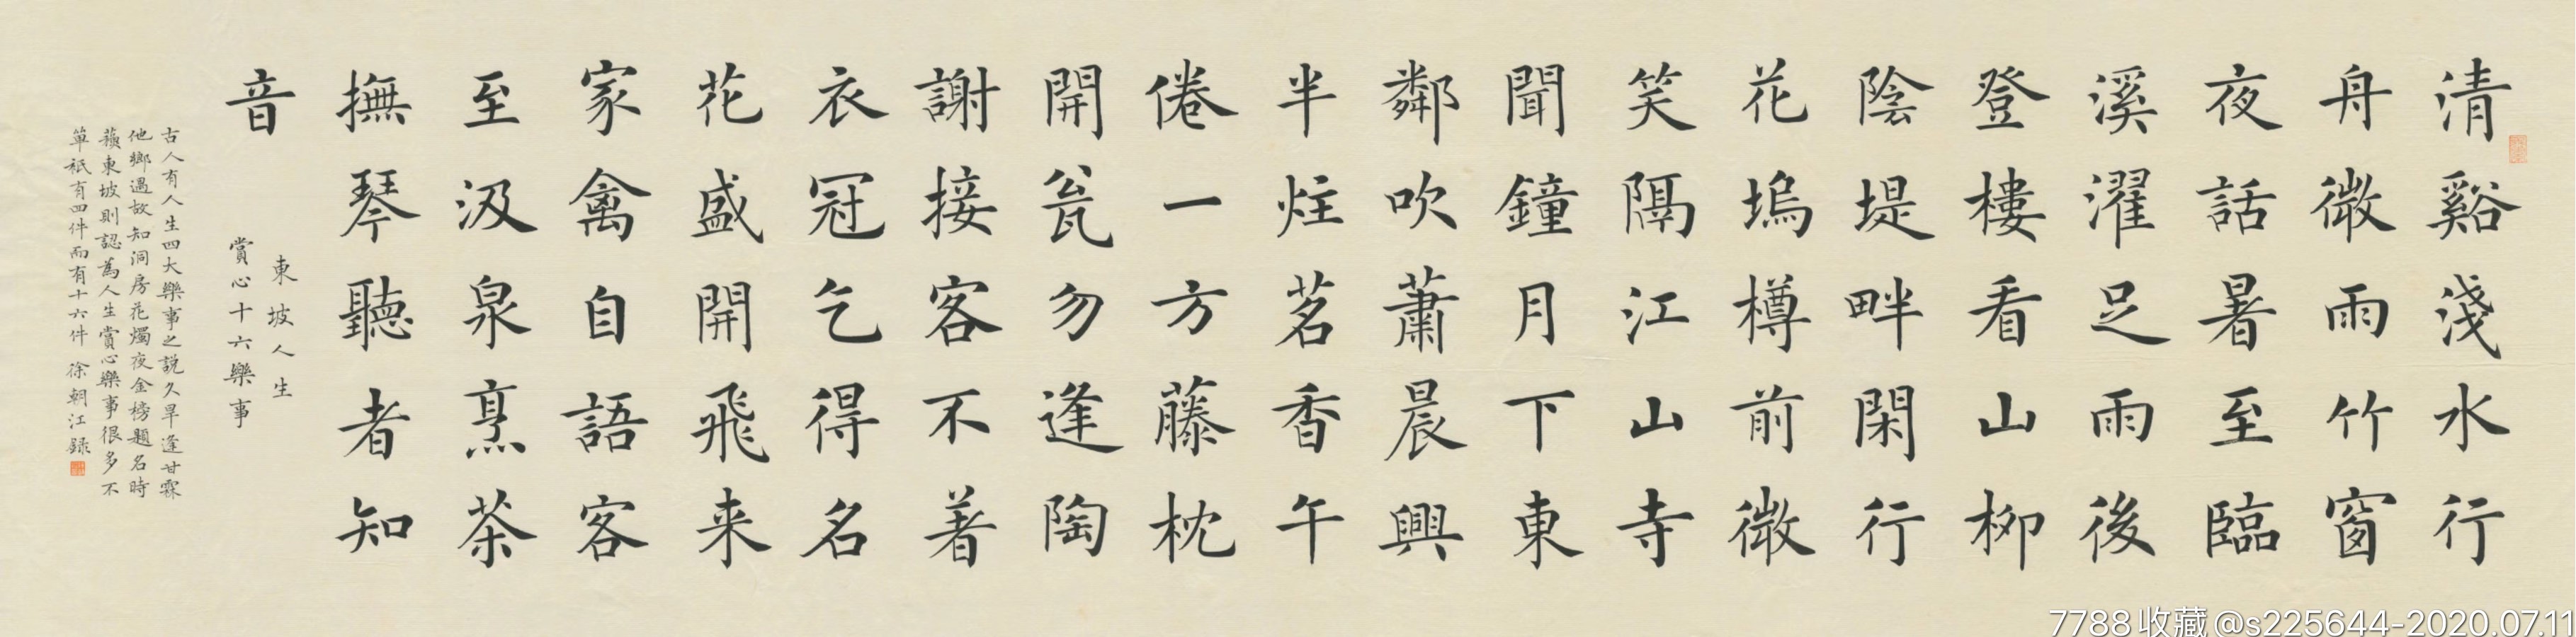 清谿淺水行
舟微雨竹窗
夜話暑至臨
溪濯足雨後
登樓看山柳
陰堤畔閑行
花塢樽前微
笑隔江山寺
聞鐘月下東
鄰吹蕭晨興
半炷茗香午
倦一方藤枕
開瓮勿逢陶
謝接客不著
衣冠乞得名
花盛開飛来
家禽自語客
至汲泉烹茶
撫琴聽者知
音
東坡人生
賞心十六樂事
古人有人生四大樂事之説久旱逢甘霖
他鄉遇故知洞房花燭夜金榜題名時
蘓東坡則認為人生賞心樂事很多不
單祇有四件而有十六件 徐朝江録
7788收藏@s225644-2020.07.11